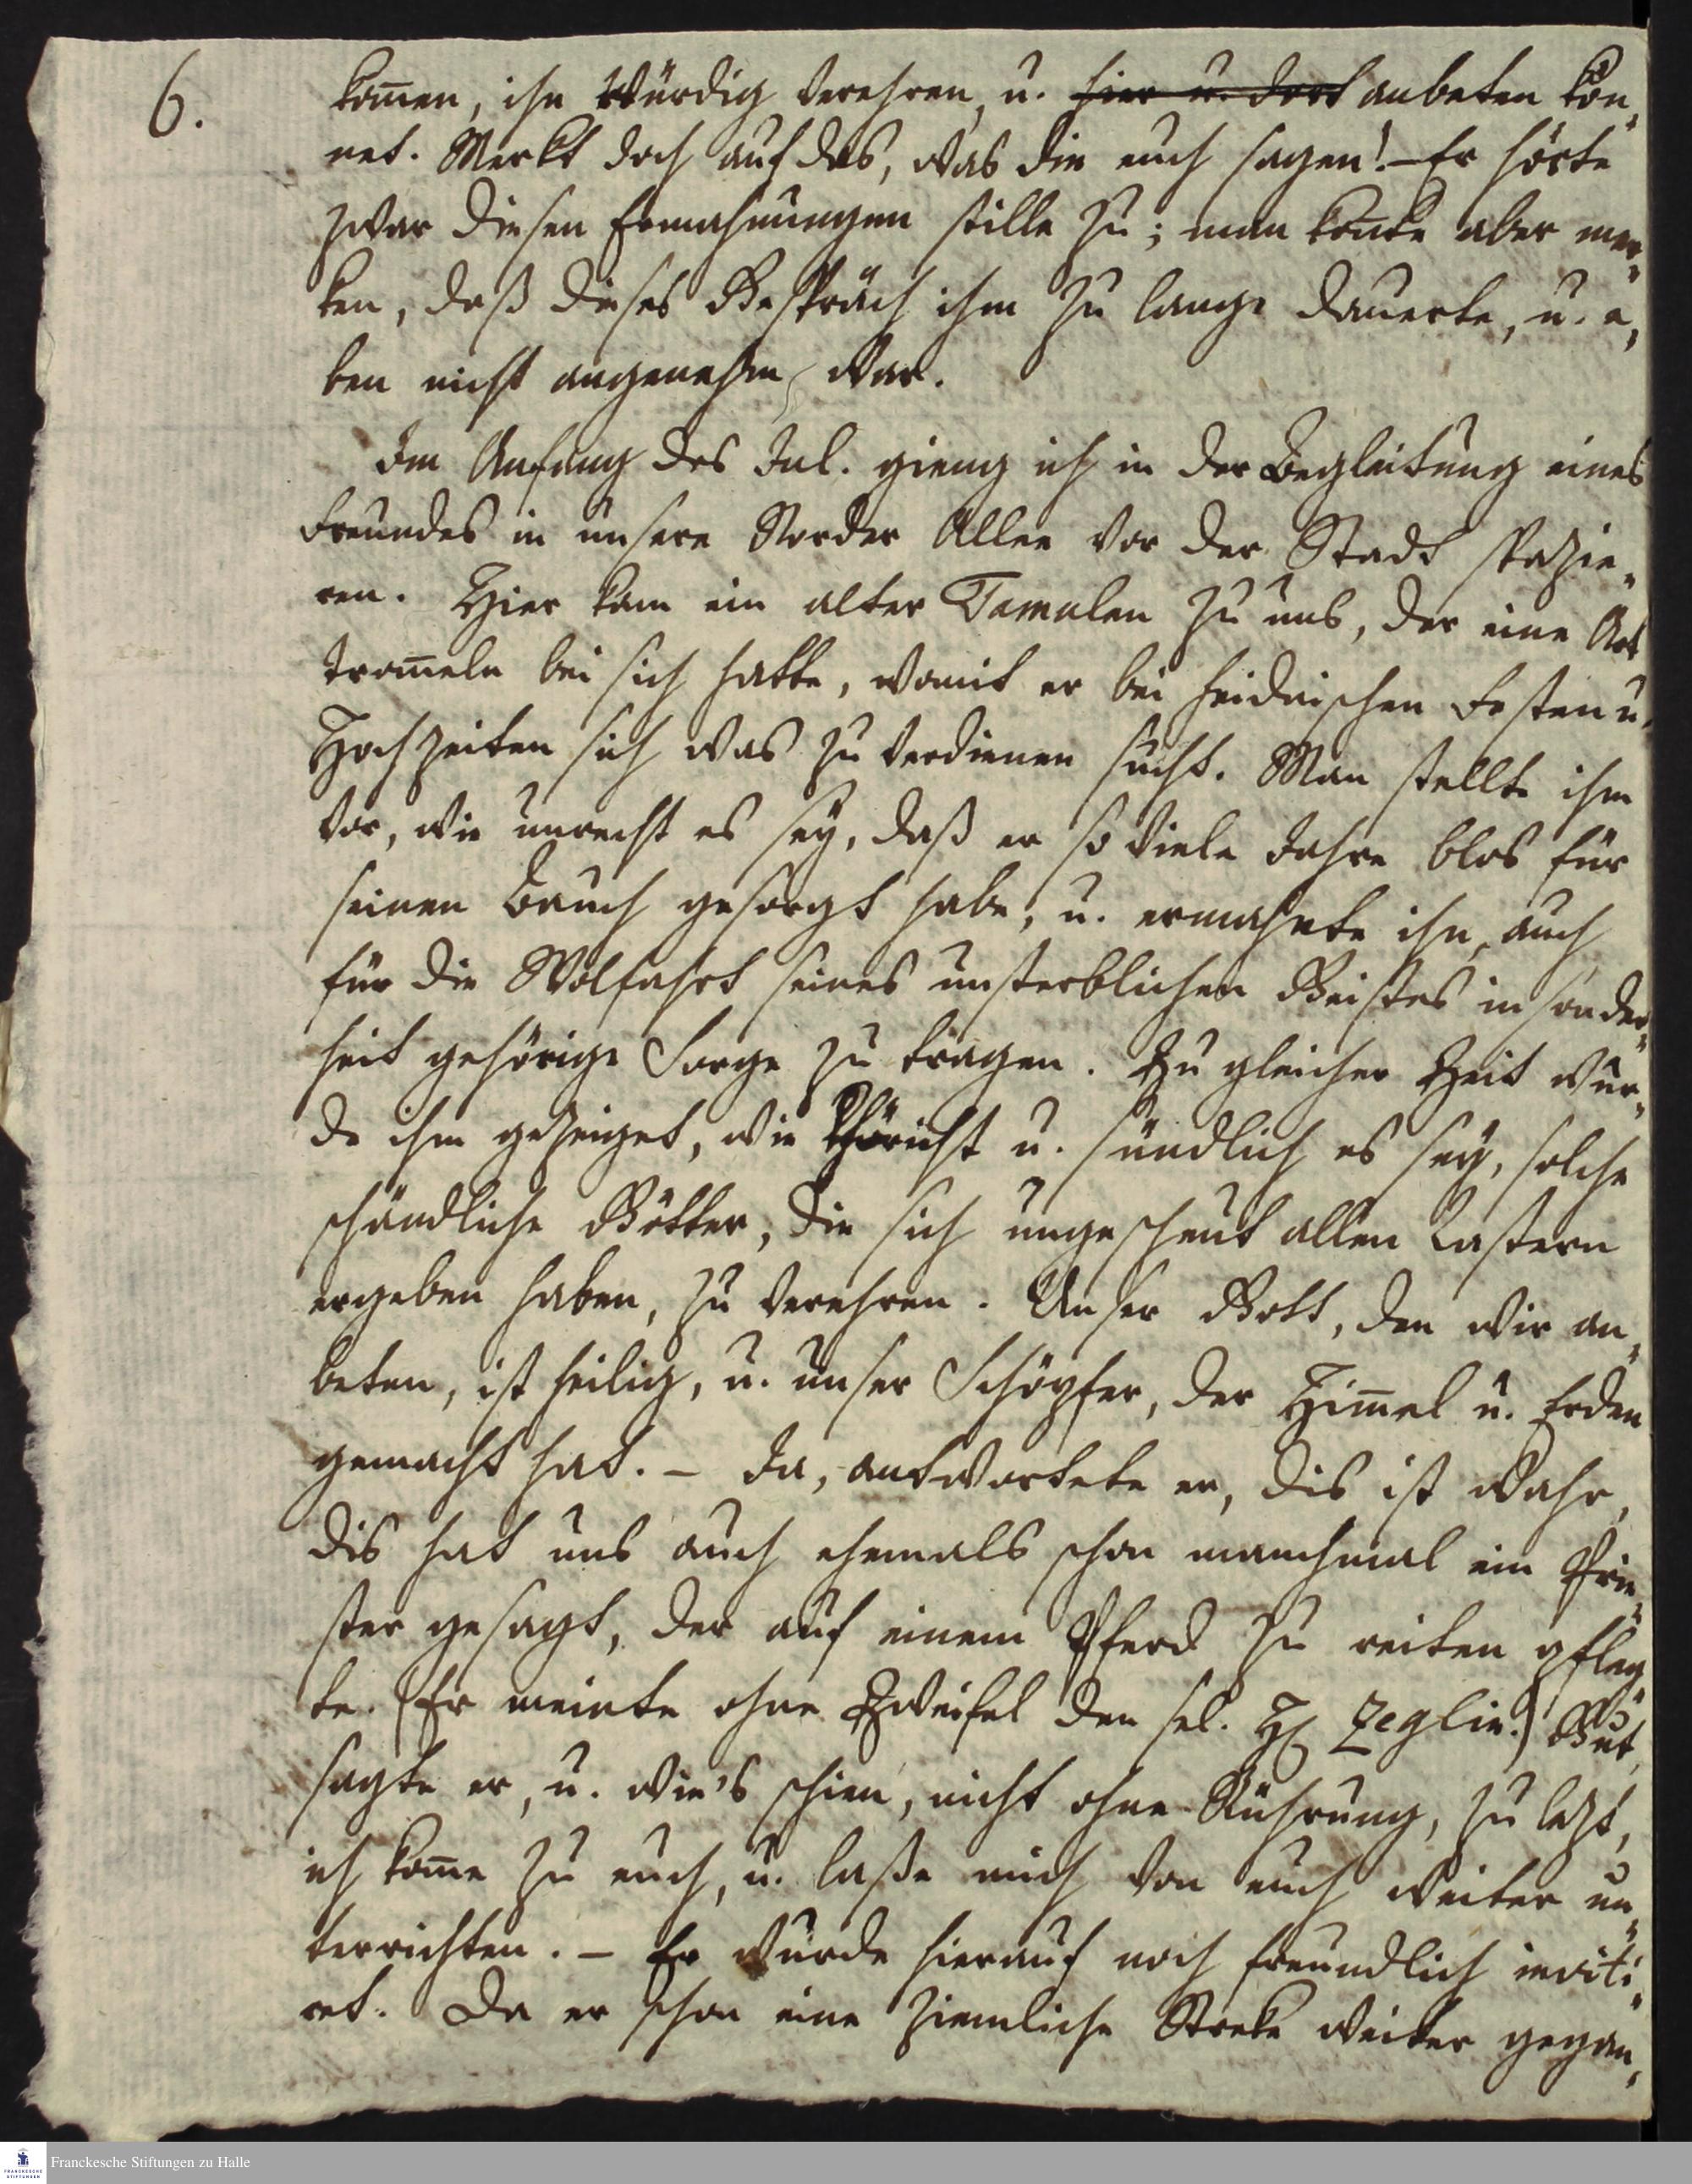 6.
kom̄en, ihn würdig verehren, u. hier u. dort anbeten kön„
net. Merkt doch auf das, was die euch sagen! – Er hörte
zwar diesen Ermahnungen stille zu; man konte aber mer„
ken, daß dieses Gespräch ihm zu lange dauerte, u. e„
ben nicht angenehm war.
Im Anfang des Jul. gieng ich in der Begleitung eines
Freundes in unsere Norder Allee vor der Stadt spazie„
ren. Hier kam ein alter Tamulen zu uns, der eine Art
trom̄eln bei sich hatte, womit er bei heidnischen Festen u.
Hochzeiten sich was zu verdienen sucht. Man stellte ihm
vor, wie unrecht es sey, daß er so viele Jahre blos für
seinen Bauch gesorgt habe; u. ermahnte ihn, auch
für die Wolfahrt seines unsterblichen Geistes insonder„
heit gehörige Sorge zu tragen. Zu gleicher Zeit wur„
de ihm gezeiget, wie thöricht u. sündlich es sey, solche
schändliche Götter, die sich ungescheut allen Lastern
ergeben haben, zu verehren. Unser Gott, den wir an„
beten, ist heilig, u. unser Schöpfer, der Him̄el u. Erden
gemacht hat. – Ja, antwortete er, dis ist wahr,
dis hat uns auch ehemals schon manchmal ein Prie„
ster gesagt, der auf einem Pferd zu reiten pfleg„
te. (Er meinte ohne Zweifel den sel. H. Zeglin.) Gut,
sagte er, u. wie's schien, nicht ohne Rührung, zu lezt,
ich kom̄e zu euch, u. laße mich von euch weiter un„
terrichten. – Er wurde hierauf noch freundlich inviti„
ret. Da er schon eine ziemliche Streke weiter gegan„
Franckesche Stiftungen zu Halle
FRANCKESCHE STIFTUNGEN